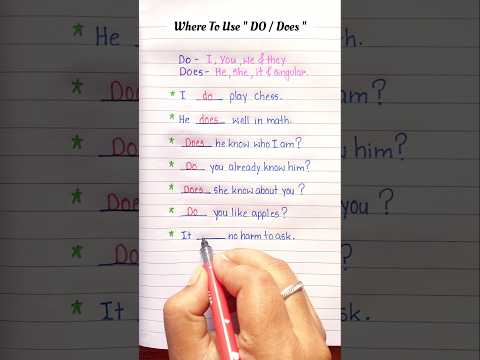 Where To Use " DO / Does "
Do - I, You, We & they
Does - He, She, it & singular.
* I do play chess.
* He does well in math.
* Does he know who I am?
* Do you already know him?
* Does she know about you?
* Do you like apples?
* It ____ no harm to ask.